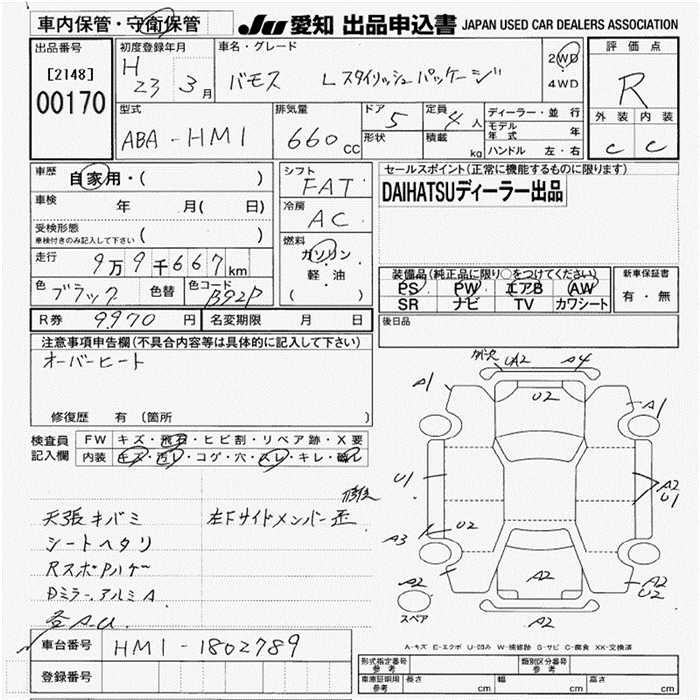 車内保管・守衛保管 JU 愛知 出品申込書 JAPAN USED CAR DEALERS ASSOCIATION
出品番号 [2148] 00170
初度登録年月 H 23 3月
車名・グレード バモス Lスタイリッシュパッケージ
2WD 4WD
評価点 R
外装 内装 C C
型式 ABA-HM1
排気量 660cc
ドア 5
形状
定員 4人
積載 kg
ディーラー・並行
モデル年式 年
ハンドル 左・右
車歴 自家用・( )
車検 年 月( 日)
受検形態 車検付きのみ記入して下さい ( )
走行 9万9千667km
色 ブラック 色替 色コード B92P
シフト FAT
冷房 AC
燃料 ガソリン・軽油 ( )
R券 9970円 名変期限 月 日
セールスポイント(正常に機能するものに限ります)
DAIHATSUディーラー出品
装備品(純正品に限り○をつけてください)
PS PW エアB AW
SR ナビ TV カワシート
新車保証書 有・無
後日品
注意事項申告欄(不具合内容等は具体的に記入して下さい)
オーバーヒート
修復歴 有 (箇所 )
検査員記入欄 FW キズ・飛石・ヒビ割・リペア跡・X要
内装 キズ・汚レ・コゲ・穴・スレ・キレ・破レ
天張キバミ 左Fサイドメンバー歪 修後
シートヘタリ
RスポPハゲ
Dミラー.アルミA
各A.U
ガリ UA2 A4
A1 U2 A1
U1 A2 U1
A3 U2
A2 A2 A2 U2
スペア A2
A-キズ E-エクボ U-凹み W-補修跡 S-サビ C-腐食 XX-交換済
車台番号 HM1-1802789
登録番号
形式指定番号 参考 類別区分番号 参考
車庫証明用 参考 長さ cm 幅 cm 高さ cm